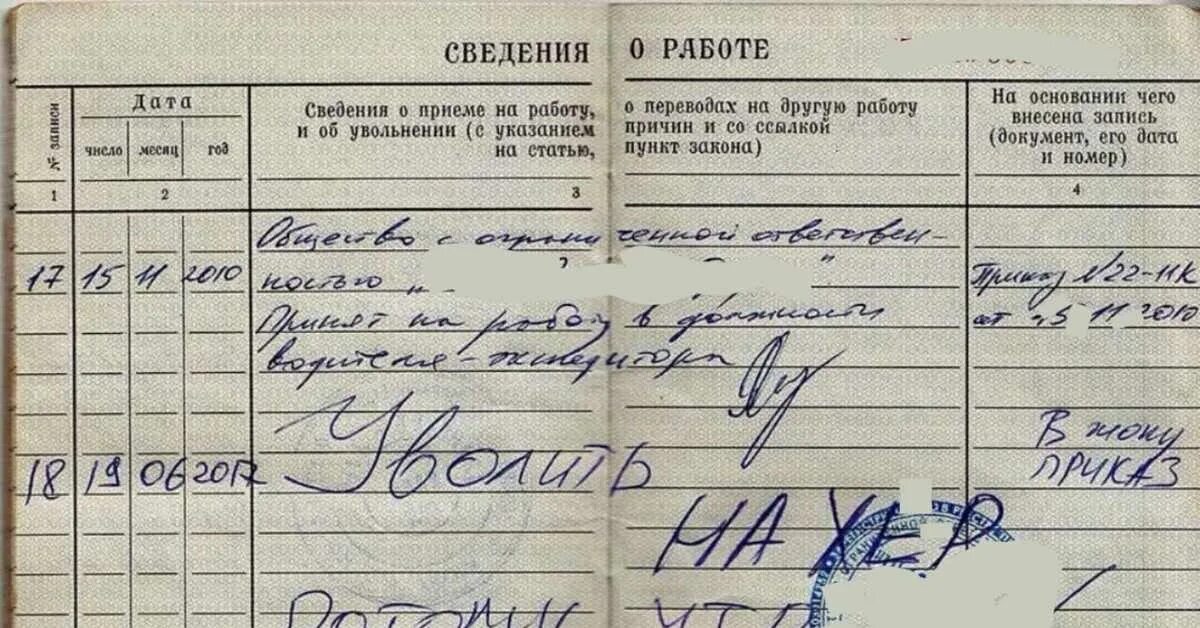 СВЕДЕНИЯ О РАБОТЕ
№ записи
Дата
число месяц год
Сведения о приеме на работу, о переводах на другую работу
и об увольнении (с указанием причин и со ссылкой
на статью, пункт закона)
На основании чего
внесена запись
(документ, его дата
и номер)
1 2 3 4
Общество с ограниченной ответствен-
17 15 11 2010 ностью „ “ Приказ №22-11К
Принят на работу в должности от 15 11 2010
водителя-экспедитора
В жопу
18 19 06 2017 Уволить ПРИКАЗ
НА ХЕР
Потому что